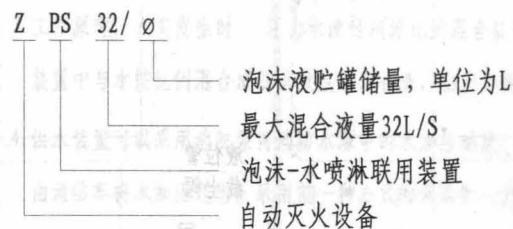 Z PS 32/ ø
泡沫液贮罐储量，单位为L
最大混合液量32L/S，
泡沫-水喷淋联用装置
自动灭火设备